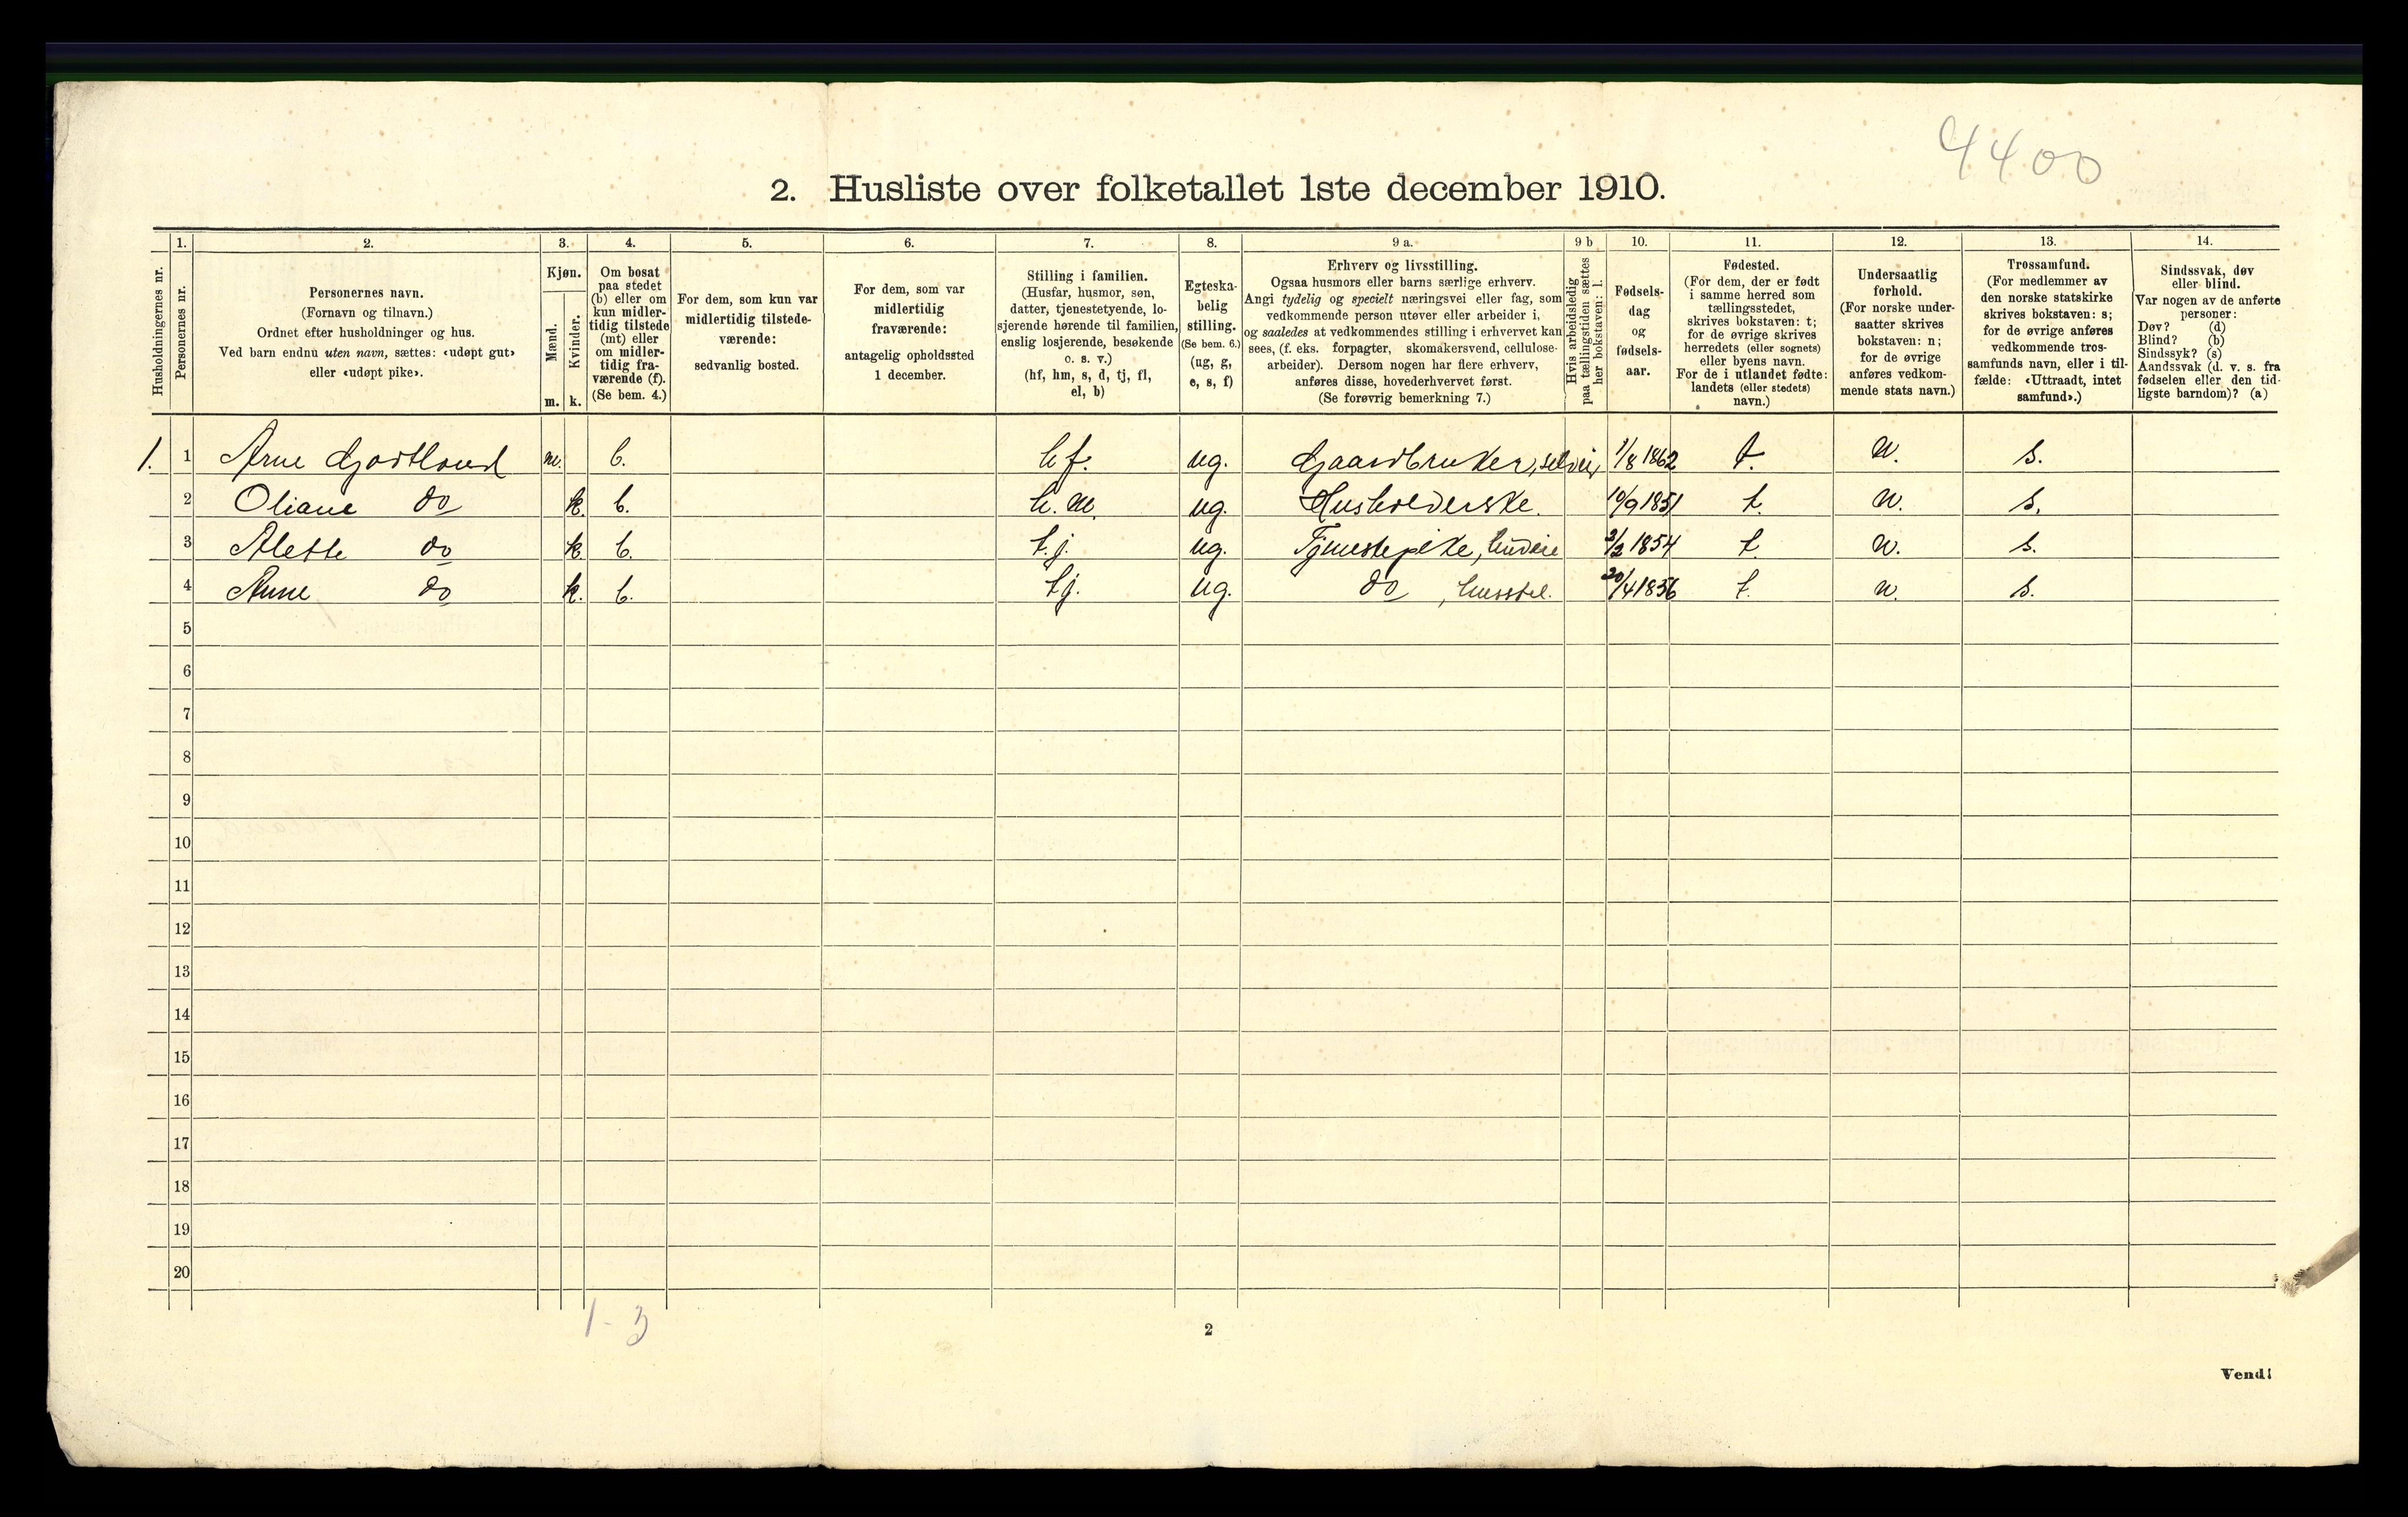 4400
2. Husliste over folketallet 1ste december 1910.
Husholdningernes nr.
1.
Personernes nr.
2.
Personernes navn.
(Fornavn og tilnavn.)
Ordnet efter husholdninger og hus.
Ved barn endnu uten navn, sættes: «udøpt gut»
eller «udøpt pike».
3.
Kjøn.
Mænd.
Kvinder.
m. k.
4.
Om bosat
paa stedet
(b) eller om
kun midler-
tidig tilstede
(mt) eller
om midler-
tidig fra-
værende (f).
(Se bem. 4.)
5.
For dem, som kun var
midlertidig tilstede-
værende:
sedvanlig bosted.
6.
For dem, som var
midlertidig
fraværende:
antagelig opholdssted
1 december.
7.
Stilling i familien.
(Husfar, husmor, søn,
datter, tjenestetyende, lo-
sjerende hørende til familien,
enslig losjerende, besøkende
o. s. v.)
(hf, hm, s, d, tj, fl,
el, b)
8.
Egteska-
belig
stilling.
(Se bem. 6.)
(ug, g,
e, s, f)
9 a.
Erhverv og livsstilling.
Ogsaa husmors eller barns særlige erhverv.
Angi tydelig og specielt næringsvei eller fag, som
vedkommende person utøver eller arbeider i,
og saaledes at vedkommendes stilling i erhvervet kan
sees, (f. eks. forpagter, skomakersvend, cellulose-
arbeider). Dersom nogen har flere erhverv,
anføres disse, hovederhvervet først.
(Se forøvrig bemerkning 7.)
9 b
Hvis arbeidsledig
paa tællingstiden sættes
her bokstaven: l.
10.
Fødsels-
dag
og
fødsels-
aar.
11.
Fødested.
(For dem, der er født
i samme herred som
tællingsstedet,
skrives bokstaven: t;
for de øvrige skrives
herredets (eller sognets)
eller byens navn.
For de i utlandet fødte:
landets (eller stedets)
navn.)
12.
Undersaatlig
forhold.
(For norske under-
saatter skrives
bokstaven: n;
for de øvrige
anføres vedkom-
mende stats navn.)
13.
Trossamfund.
(For medlemmer av
den norske statskirke
skrives bokstaven: s;
for de øvrige anføres
vedkommende tros-
samfunds navn, eller i til-
fælde: «Uttraadt, intet
samfund».)
14.
Sindssvak, døv
eller blind.
Var nogen av de anførte
personer:
Døv? (d)
Blind? (b)
Sindssyk? (s)
Aandssvak (d. v. s. fra
fødselen eller den tid-
ligste barndom)? (a)
1. 1 Arne Gjortland m. b. hf. ug. Gaardbruker, selveier 1/8 1862 t. n. s.
2 Oliane do k. b. h.m. ug. Husholderske. 10/9 1851 t. n. s.
3 Alette do k. b. t.j. ug. Tjenestepike, 2/2 1854 t. n. s.
4 Anne do k. b. tj. ug. do, husstel. 20/4 1856 t. n. s.
5
6
7
8
9
10
11
12
13
14
15
16
17
18
19
20
1-3
2
Vend!